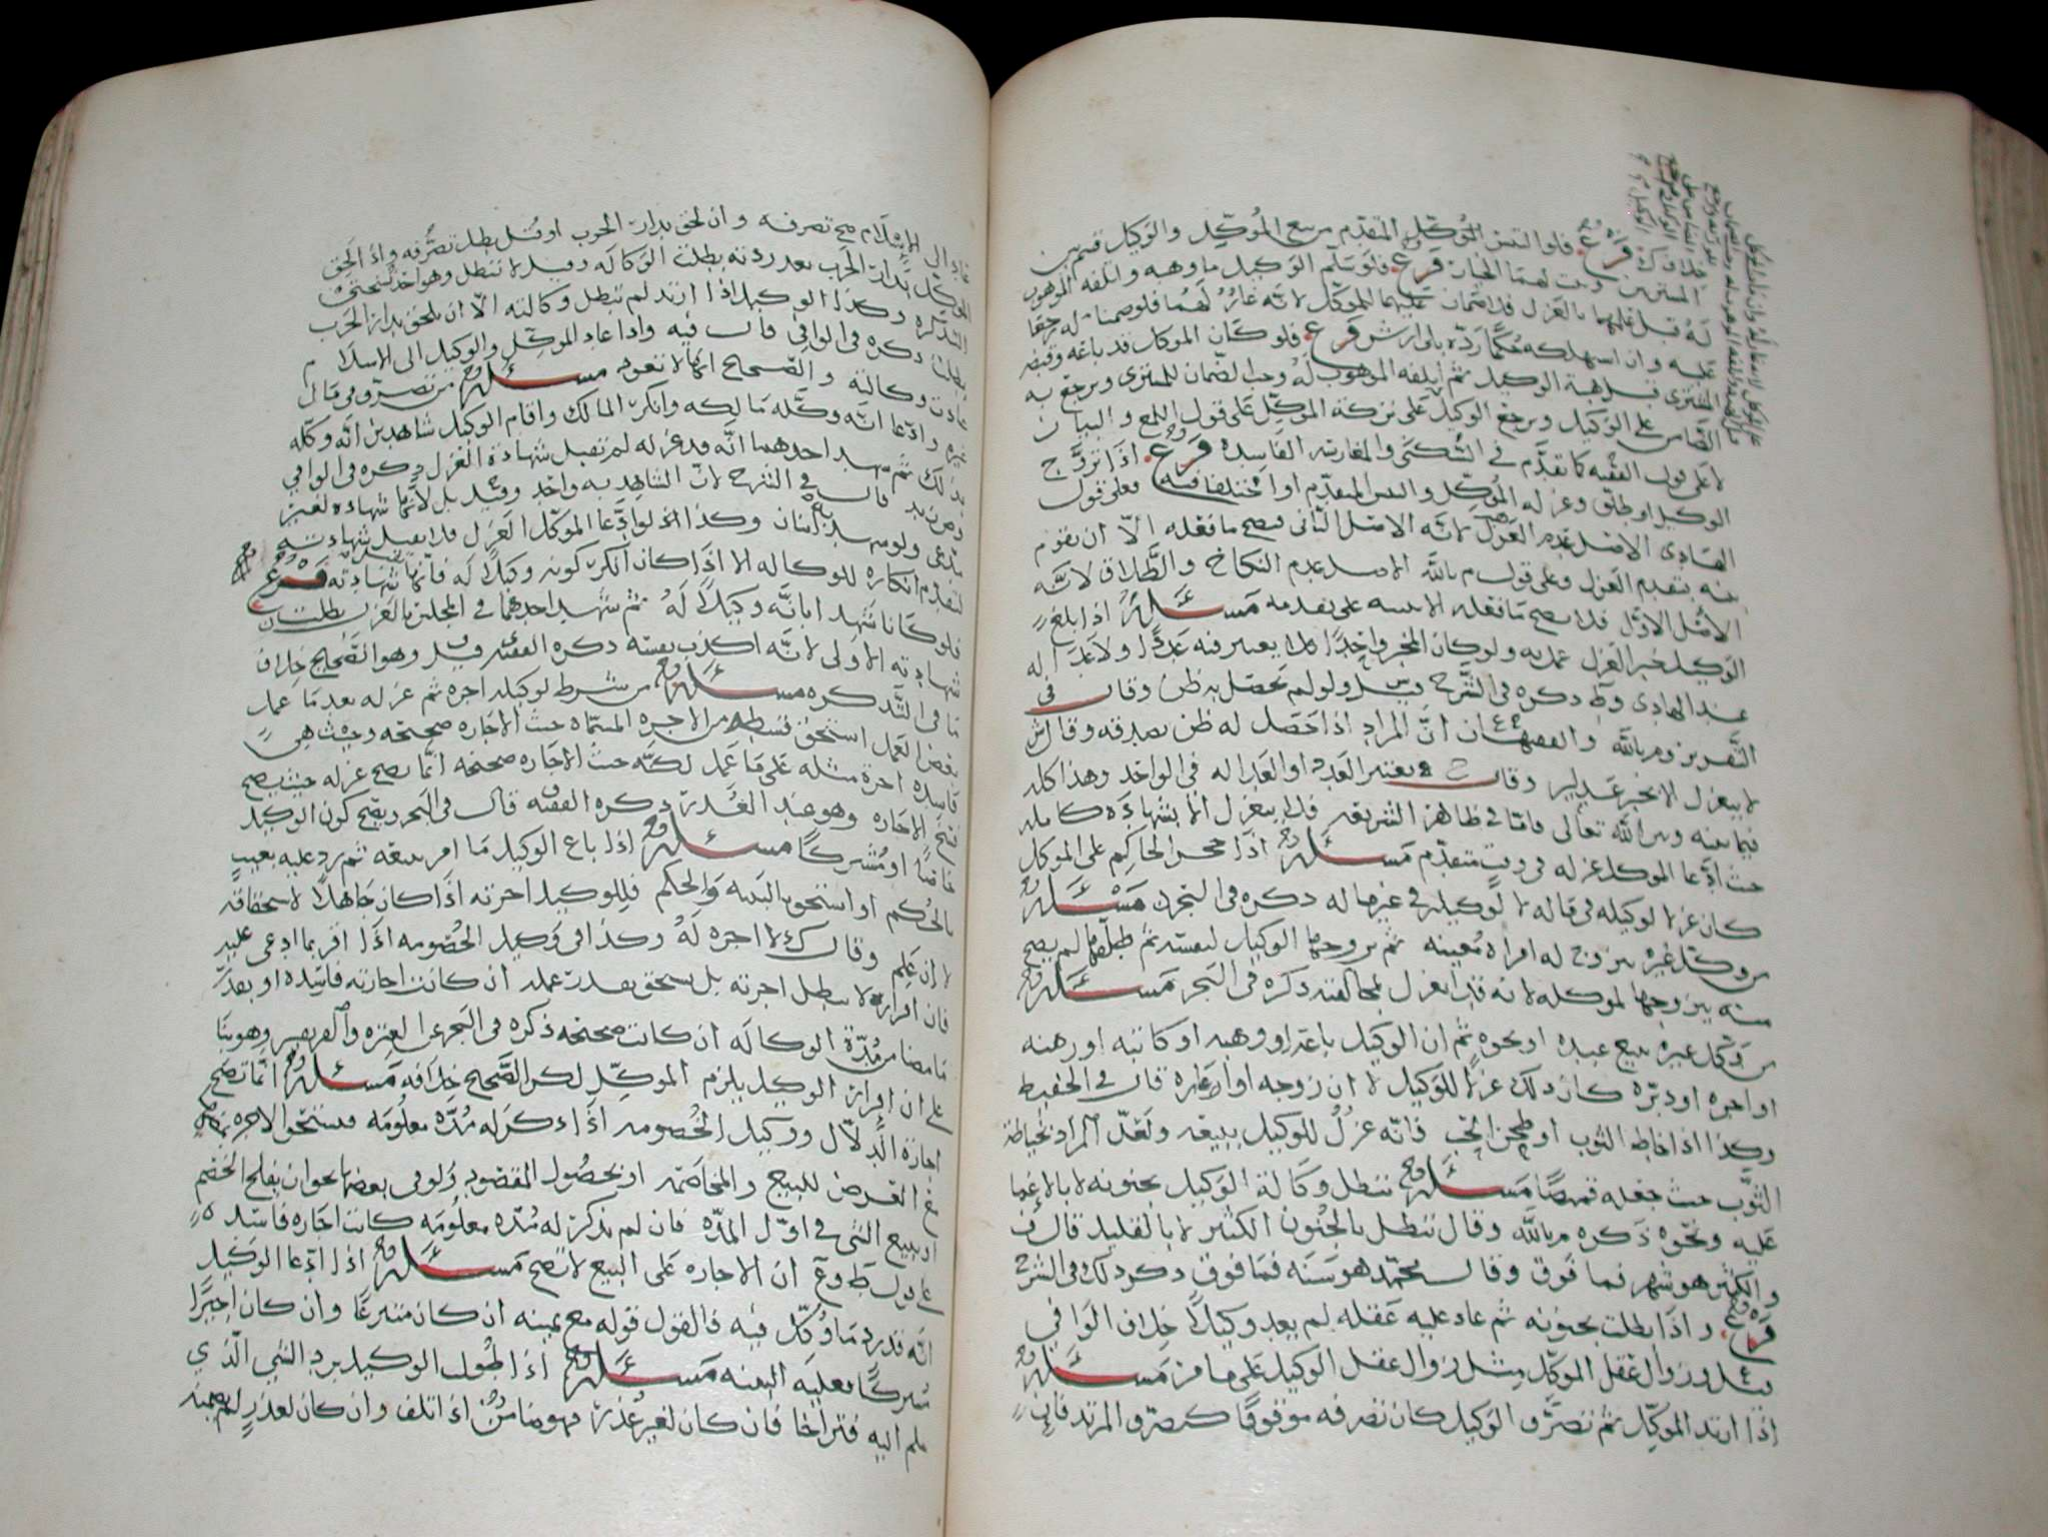 خلافك فرع فلو التبس الموكل المتقدم من بيع الموكل والوكيل قسم بين
المشتريين وثبت لهما الخيار فرع فلو سلم الوكيل ما وهبه واتلفه الموهوب
له قبل علمهما بالعزل فلا ضمان عليهما للموكل لانه غار لهما
عليه وان استهلكه حكما رده بلا ارش فرع فلو كان الموكل قد باعه وقبضه
المشتري قبل هبة الوكيل ثم اتلفه الموهوب له وجب الضمان للمشتري ويرجع به
على الوكيل ويرجع الوكيل على تركة الموكل على قول اللمع والبيان
لا على قول الفقيه كما تقدم في السكنى والمغارسة الفاسدة فرع اذا تزوج
الوكيل او طلق وعزله الموكل والتبس المتقدم او اختلفا فيه فعلى قول
الهادي الاصل عدم العزل لانه الاصل الثاني فيصح ما فعله الا ان تقوم
بينة بتقدم العزل وعلى قول م بالله الاصل عدم النكاح والطلاق لانه
الاصل الاول فلا يصح ما فعله الا ببينة على تقدمه مسئلة اذا بلغ
الوكيل خبر العزل عمل به ولو كان المخبر واحدا ولا يعتبر فيه عددا ولا عدالة
عند الهادي وط ذكره في الشرح قيل ولو لم يحصل به ظن وقال في
التقرير وم بالله والفقهاء ان المراد اذا حصل له ظن بصدقه وقال ش
لا ينعزل الا بخبر عدلين وقال ح يعتبر العدد او العدالة في الواحد وهذا كله
فيما بينه وبين الله تعالى فاما في ظاهر الشريعة فلا ينعزل الا بشهادة كاملة
حيث ادعا الموكل عزله في وقت متقدم مسئلة اذا حجر الحاكم على الموكل
كان عزلا لوكيله في ماله لا لوكيله في غير ماله ذكره في البحر مسئلة
من وكل غيره يتزوج له امراة معينة ثم تزوجها الوكيل لنفسه ثم طلقها لم يصح
منه يتزوجها لموكله لانه قد انعزل بمخالفته ذكره في البحر مسئلة
من وكل غيره ببيع عبده او نحوه ثم ان الوكيل باعه او وهبه او كاتبه او رهنه
او اجره او دبره كان ذلك عزلا للوكيل لا ان زوجه او اعاره قال في الحفيظ
وكذا اذا خاط الثوب او طحن الحب فانه عزل للوكيل ببيعه ولعل المراد بخياطة
الثوب حيث جعله قميصا مسئلة تبطل وكالة الوكيل بجنونه لا بالاغما
عليه ونحوه ذكره م بالله وقال تبطل بالجنون الكثير لا بالقليل قال ف
والكثير هو شهر فما فوق وقال محمد هو سنة فما فوق ذكر ذلك في الشرح
فرع واذا بطلت بجنونه ثم عاد عليه عقله لم يعد وكيلا خلاف الوافي
قيل وزوال عقل الموكل مثل زوال عقل الوكيل على ما مر مسئلة
اذا ارتد الموكل ثم تصرف الوكيل كان تصرفه موقوفا كتصرف المرتد فان
عاد الى الاسلام صح تصرفه وان لحق بدار الحرب او قتل بطل تصرفه واذا لحق
الموكل بدار الحرب بعد ردته بطلت الوكالة وقيل لا تبطل وهو احد
التذكرة وكذا الوكيل اذا ارتد لم تبطل وكالته الا ان يلحق بدار الحرب
بطلت ذكره في الوافي قال فيه واذا عاد الموكل والوكيل الى الاسلام
عادت وكالته والصحيح انها لا تعود مسئلة من تصرف في مال
غيره وادعا انه وكله مالكه وانكر المالك واقام الوكيل شاهدين انه وكله
بذلك ثم شهد احدهما انه قد عزله لم تقبل شهادة العزل ذكره في الوافي
قال في الشرح لان الشاهد به واحد وقيل بل لانها شهادة لغير
مدعي ولو شهد به اثنان وكذا لو ادعا الموكل العزل فلا تقبل شهادته
لتقدم انكاره للوكالة الا اذا كان انكر كونه وكيلا له فانها تقبل شهادته فرع
فلو كانا شهدا بانه وكيلا له ثم شهد احدهما في المجلس بالعزل بطلت
شهادته الاولى لانه اكذب نفسه ذكره الفقيه وهو الصحيح خلاف
ما في التذكره مسئلة من شرط لوكيله اجرة ثم عزله بعد ما عمل
بعض العمل استحق بقسطه من الاجرة المسماة حيث الاجارة صحيحة وحيث هي
فاسدة اجرة مثله على ما عمل لكنه حيث الاجارة صحيحة انما يصح عزله حيث يصح
فسخ الاجارة وهو عند العذر ذكره الفقيه قال في البحر ويصح كون الوكيل
خاصا او مشتركا مسئلة اذا باع الوكيل ما امر ببيعه ثم رد عليه بعيب
بالحكم او استحق بالبينة والحكم فللوكيل اجرته اذا كان جاهلا لاستحقاقه
لا ان علم وقال ك لا اجرة له وكذا في وكيل الخصومة اذا اقر بما ادعي عليه
فان اقراره لا يبطل اجرته بل يستحق بقدر عمله ان كانت اجارته فاسدة او بقدر
ما مضا من مدة الوكالة ان كانت صحيحة ذكره في البحر عن العترة والفريقين وهو بنا
على ان اقرار الوكيل يلزم الموكل لكن الصحيح خلافه مسئلة انما تصح
اجارة الدلال ووكيل الخصومة اذا ذكر له مدة معلومة فيستحق الاجرة بمضيها
مع التعرض للبيع والمخاصمة او بحصول المقصود ولو في بعضها نحو ان يفلح الخصم
او يبيع الشي في اول المدة فان لم يذكر له مدة معلومة كانت اجارة فاسدة
على قول ط وع ان الاجارة على البيع لا تصح مسئلة اذا ادعا الوكيل
انه قد رد ما وكل فيه فالقول قوله مع يمينه ان كان متبرعا وان كان اجيرا
مشتركا فعليه البينة مسئلة اذا طولب الوكيل برد الشي الذي
سلم اليه فتراخا فان كان لغير عذر فهو ضامن اذا تلف وان كان لعذر لم يضمنه